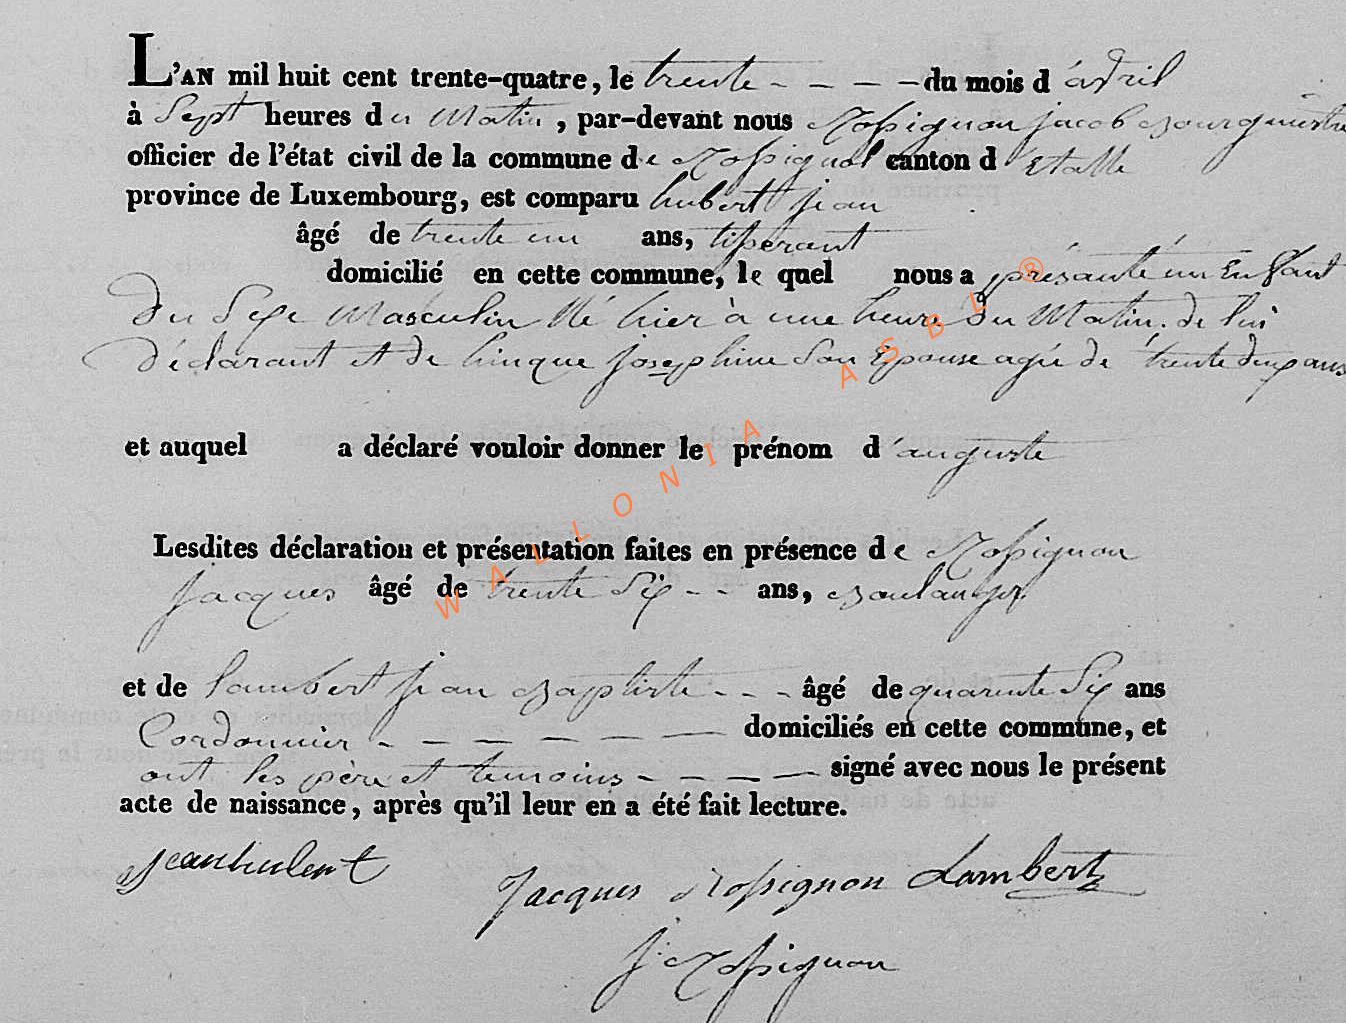 L'AN mil huit cent trente-quatre, le trente - - - - du mois d'avril
à Sept heures du Matin, par-devant nous Rossignon jacob Bourguestre
officier de l'état civil de la commune de Rossignol canton d'étalle
province de Luxembourg, est comparu hubert jean
âgé de trente un ans, tisserant
domicilié en cette commune, le quel nous a présanté un Enffant
du Sexe Masculin Né hier à une heure du Matin. de lui
déclarant et de hinque josephine Son Epouse agée de trente deux ans
et auquel a déclaré vouloir donner le prénom d'auguste
Lesdites déclaration et présentation faites en présence de Rossignon
jacques âgé de trente Six - - ans, Boulanger
et de lambert jean Baptiste - - - âgé de quarente Six ans
Cordonnier - - - - - - domiciliés en cette commune, et
ont les père et temoins - - - - signé avec nous le présent
acte de naissance, après qu'il leur en a été fait lecture.
jean hubert
Jacques Rossignon Lambert
j Rossignon
WALLONIA ASBL ®